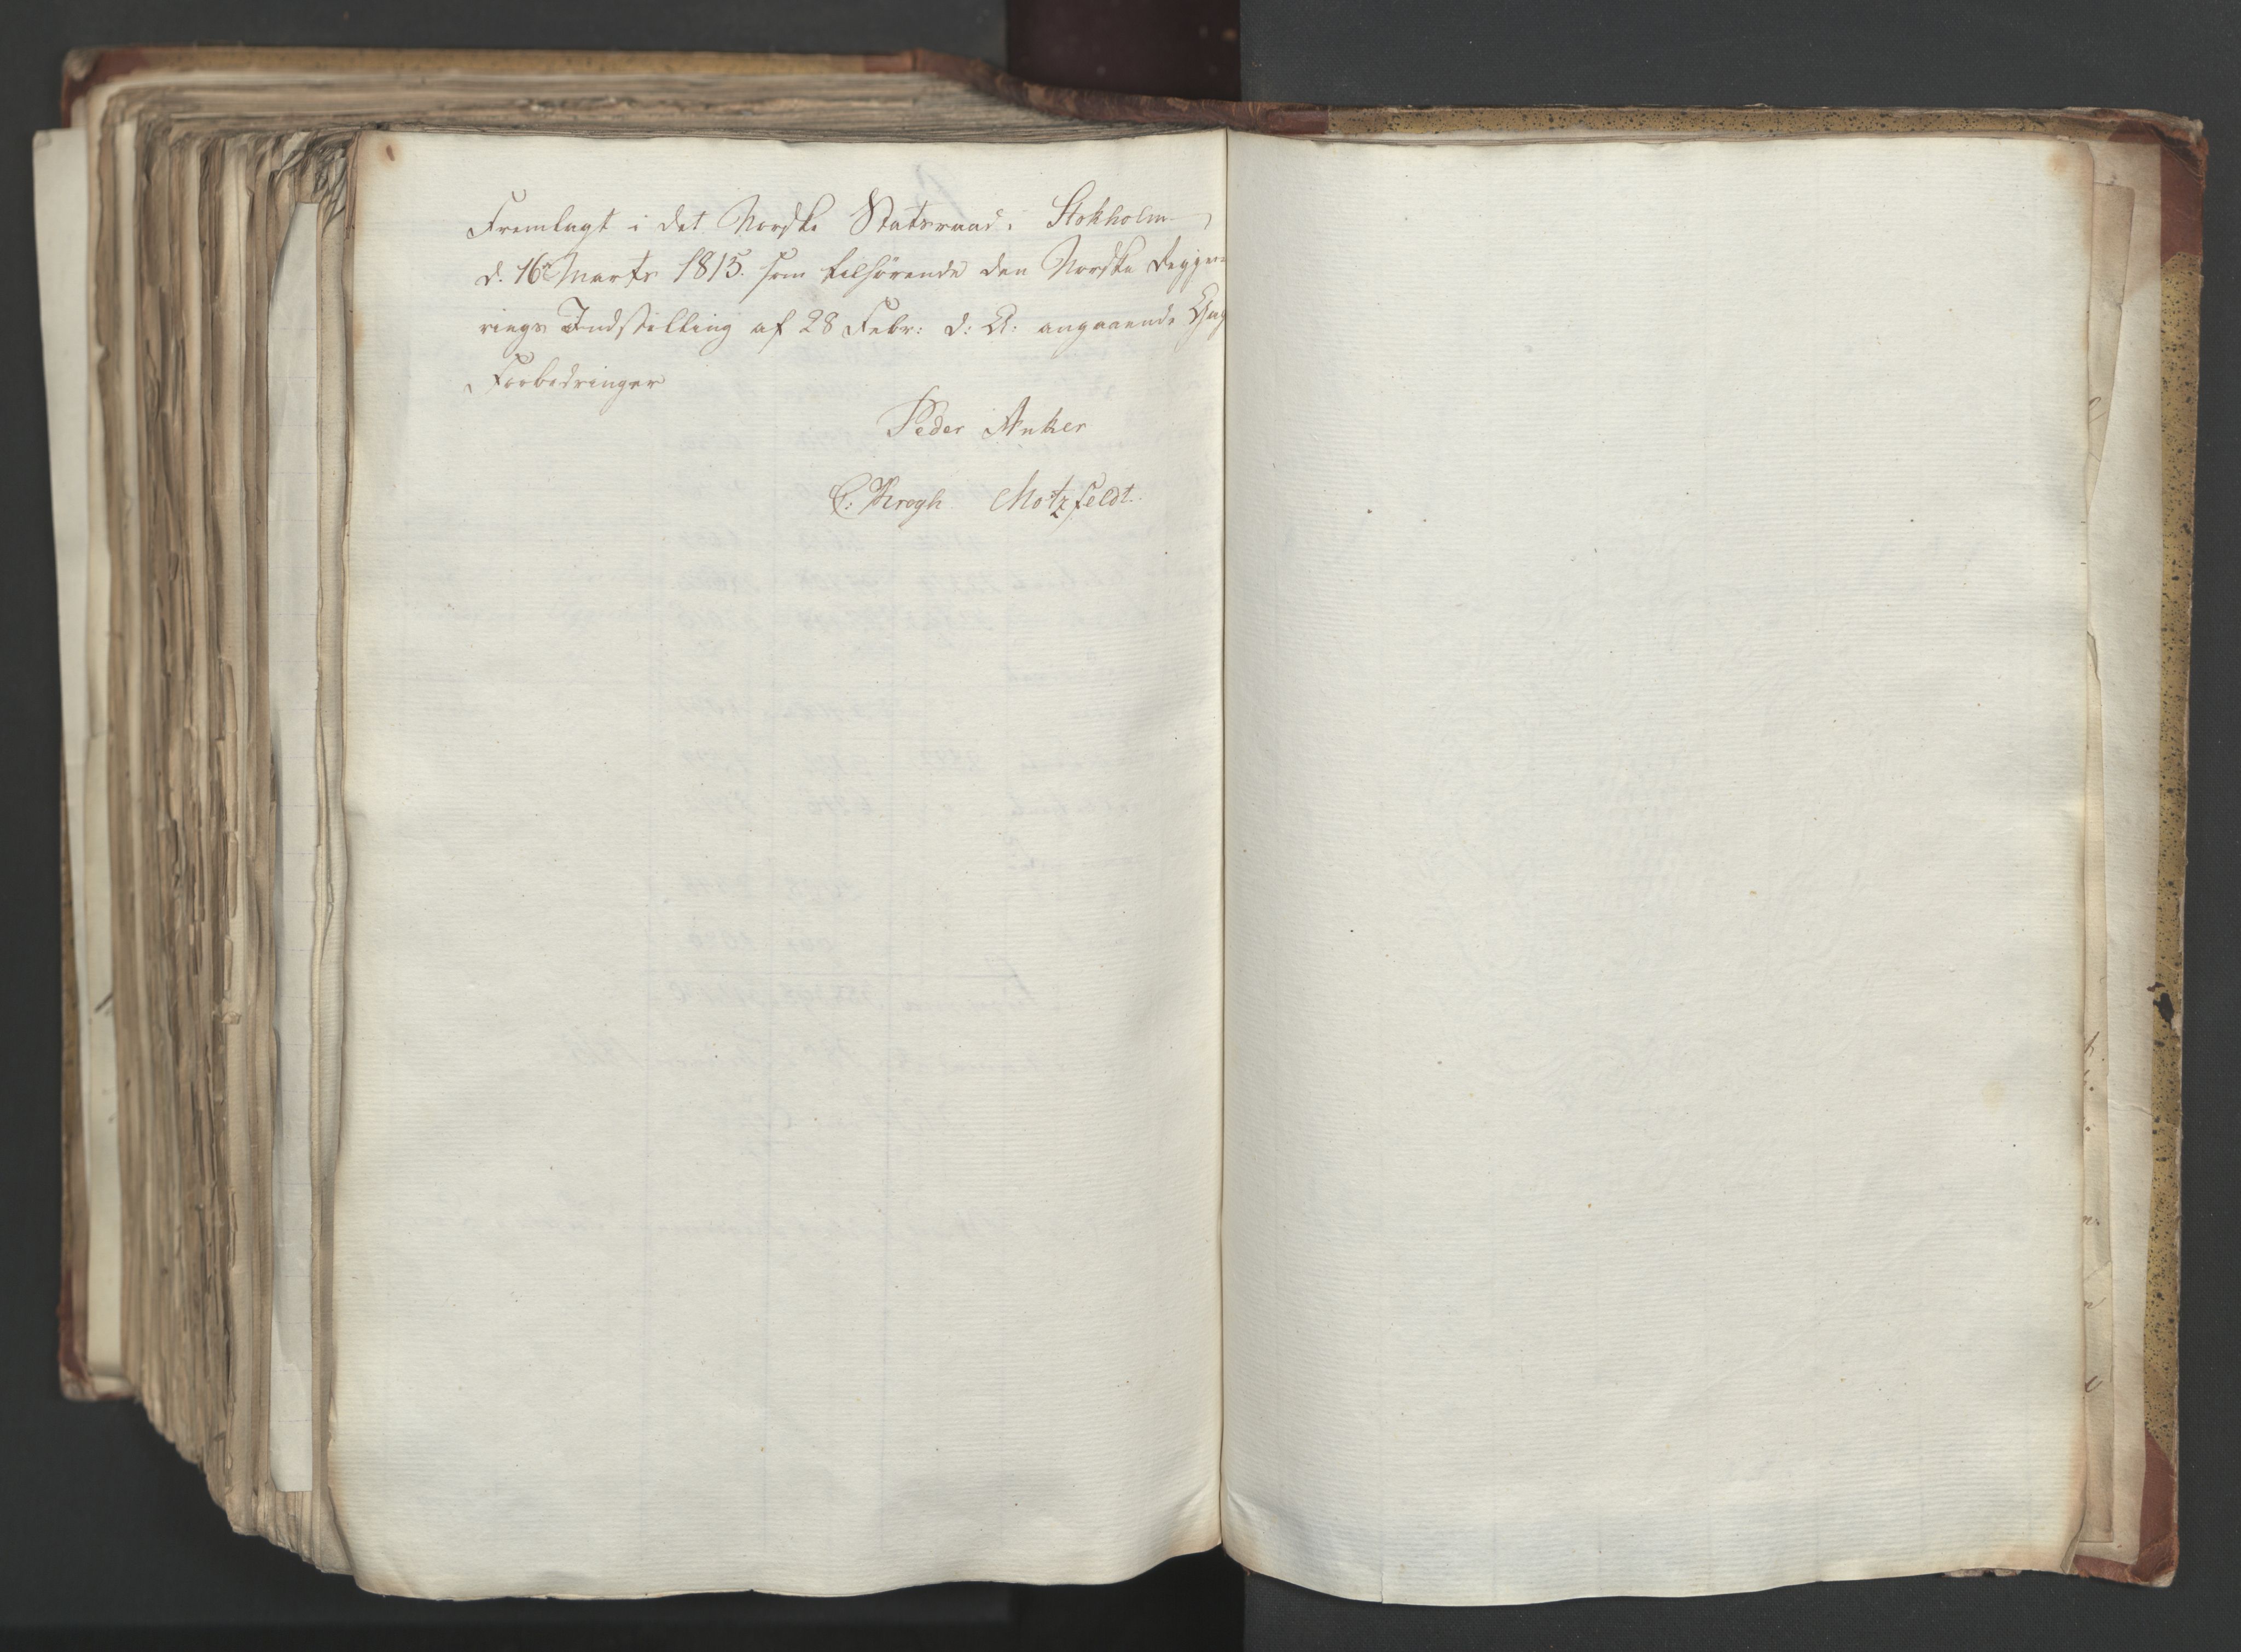 Fremlagt i det Norske Statsraad i Stokholm
d. 16 Marts 1815. som tilhörende den Norske Regje-
rings Indstilling af 28 Febr: d: A: angaaende Gage
Forbedringer
Peder Anker
C: Krogh Motzfeldt.